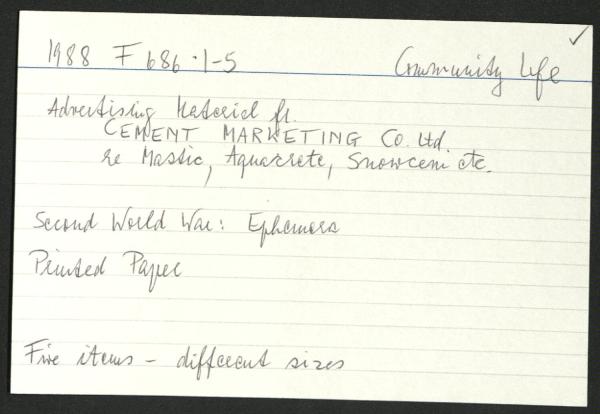 1988 F 686 .1-5 Community Life
Advertising Material fr.
CEMENT MARKETING Co. Ltd.
re Mastic, Aquacrete, Snowcem etc.
Second World War: Ephemera
Printed Paper
Five items - different sizes